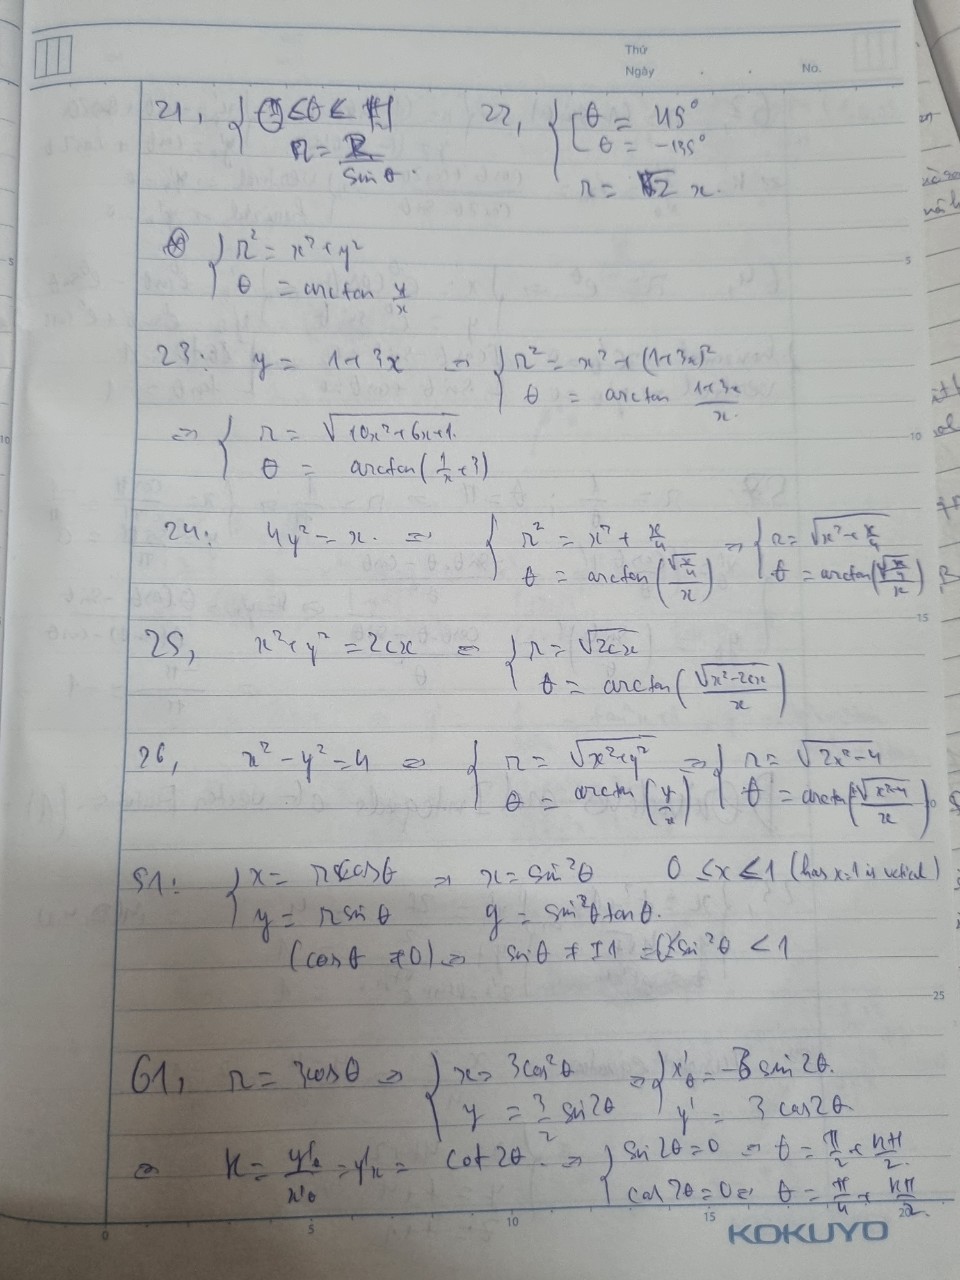 Thứ
Ngày . . No.
21, { 0 ≤ θ ≤ π
r = 2/sin θ.
22, { [ θ = 45°
θ = -135°
r = √2 x.
{ r² = x² + y²
θ = arctan y/x
23: y = 1+3x → { r² = x² + (1+3x)²
θ = arctan (1+3x)/x.
⇒ { r = √(10x²+6x+1).
θ = arctan(1/x + 3)
24: 4y² = x. ⇒ { r² = x² + x/4 ⇒ { r = √(x² + x/4)
θ = arctan(√(x/4)/x) θ = arctan(√(x/4)/x)
25, x² + y² = 2cx ⇒ { r = √(2cx)
θ = arctan(√(x²-2cx)/x)
26, x² - y² = 4 ⇒ { r = √(x²+y²) ⇒ { r = √(2x²-4)
θ = arctan(y/x) θ = arctan(√(x²-4)/x)
51: { x = r cosθ ⇒ x = sin²θ 0 ≤ x ≤ 1 (has x=1 is vertical)
y = r sin θ y = sin²θ tanθ.
(cosθ ≠ 0) ⇒ sinθ ≠ ±1 ⇒ 0 ≤ sin²θ < 1
61, r = 3cosθ ⇒ { x = 3cos²θ ⇒ { x'θ = -3 sin 2θ.
y = 3/2 sin2θ y' = 3 cos2θ
⇒ k = y'θ/x'θ = y'x = cot 2θ. ⇒ { sin 2θ = 0 ⇒ θ = π/2 + kπ/2.
cos 2θ = 0 ⇒ θ = π/4 + kπ/2.
5
10
15
25
0 5 10 15 20
KOKUYO